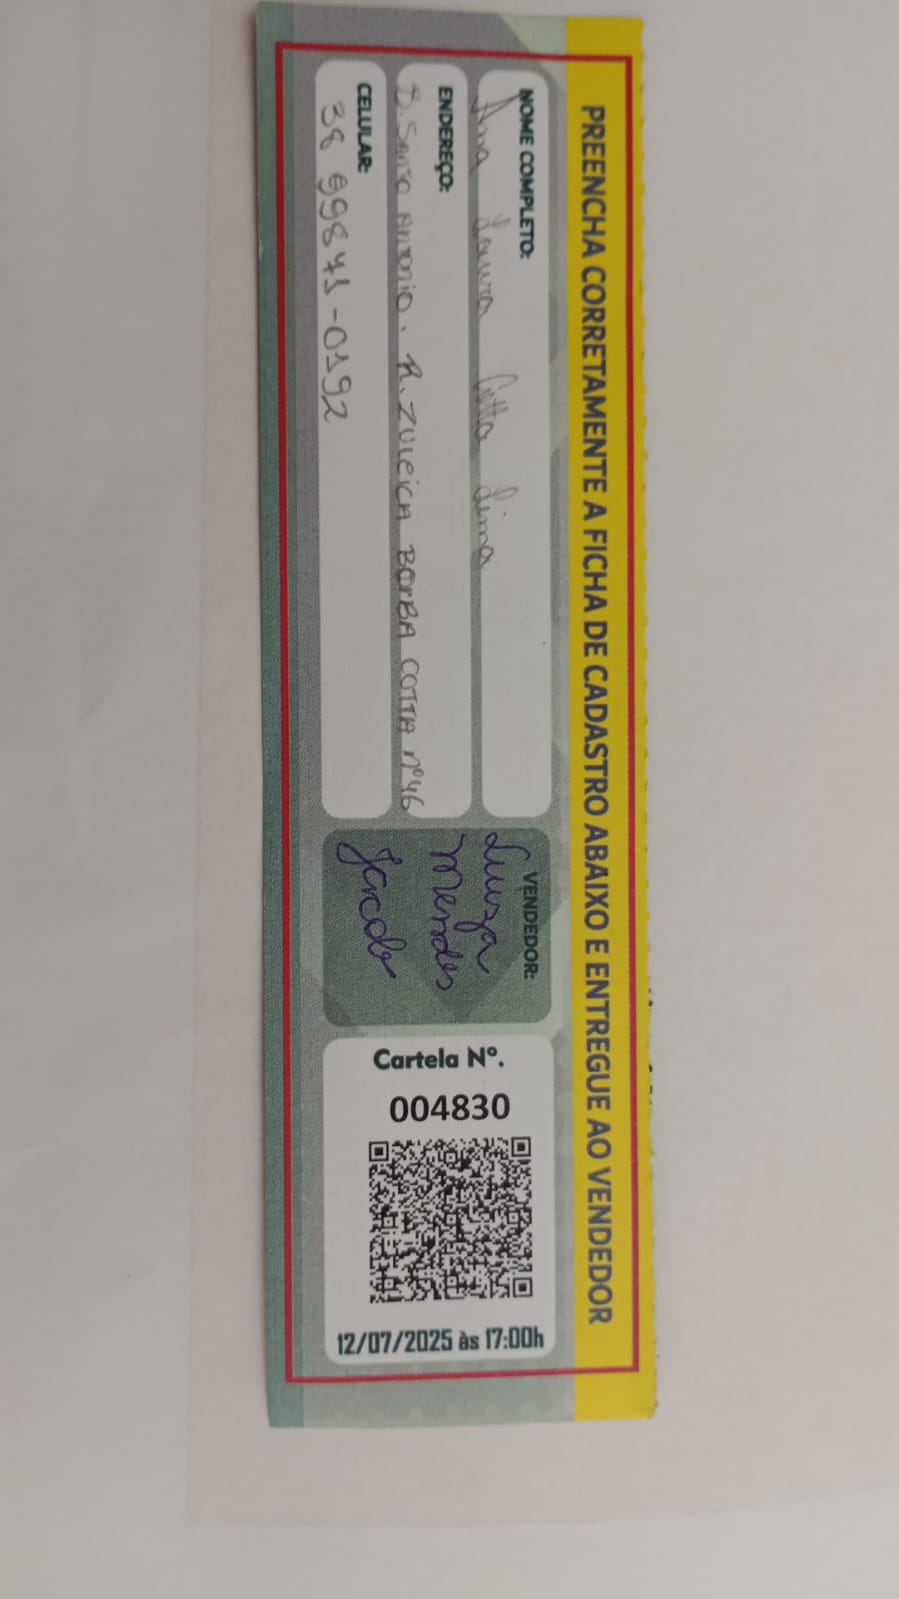 PREENCHA CORRETAMENTE A FICHA DE CADASTRO ABAIXO E ENTREGUE AO VENDEDOR
NOME COMPLETO:
Ana Laura Cotta Lima
ENDEREÇO:
B. Santo Antonio. R. ZULEICA BORBA COTTA Nº46
CELULAR:
38 99841-0192
VENDEDOR:
Luiza
Mendes
Jarcob
Cartela Nº.
004830
12/07/2025 às 17:00h